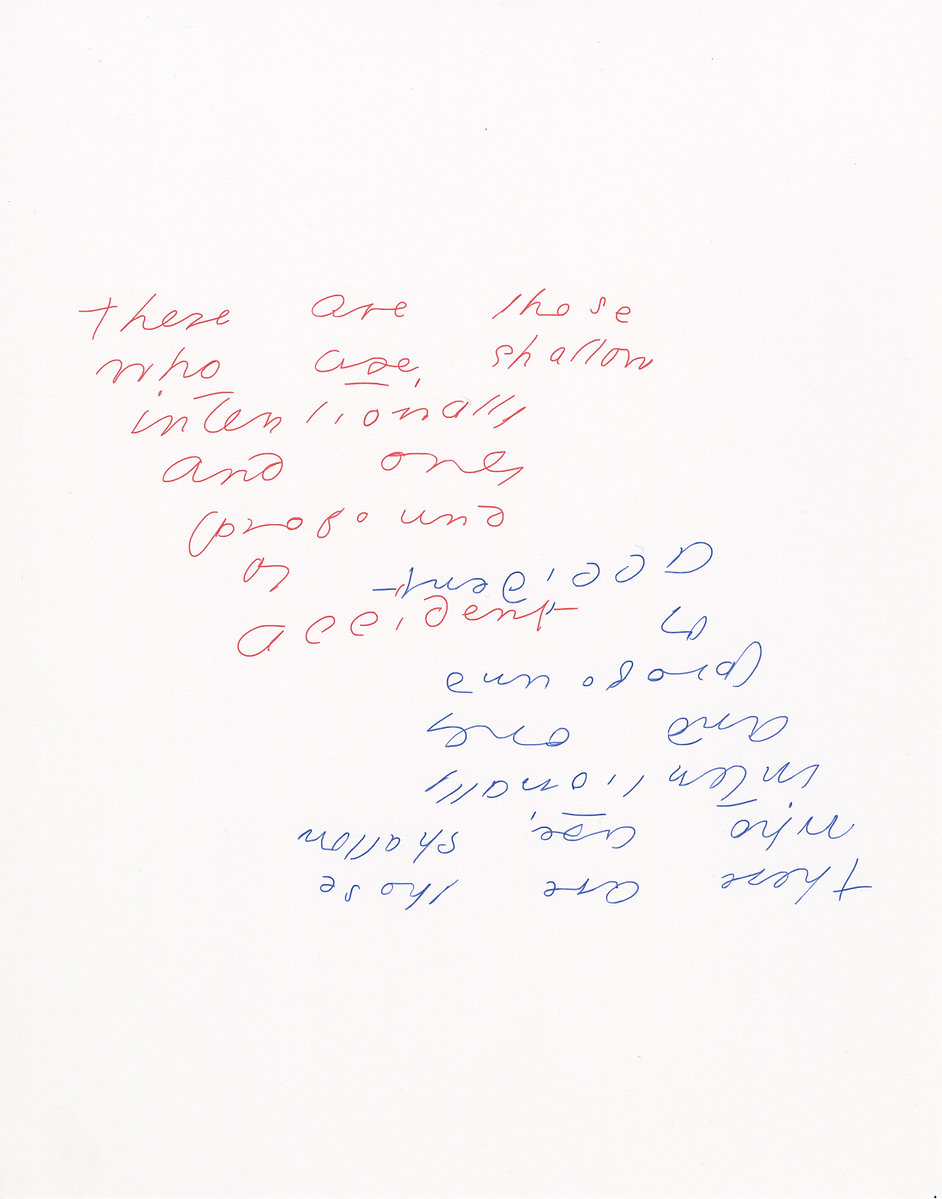 there are those
who are, shallow
intentionally
and only
profound
by
accident
there are those
who are, shallow
intentionally
and only
profound
by
accident